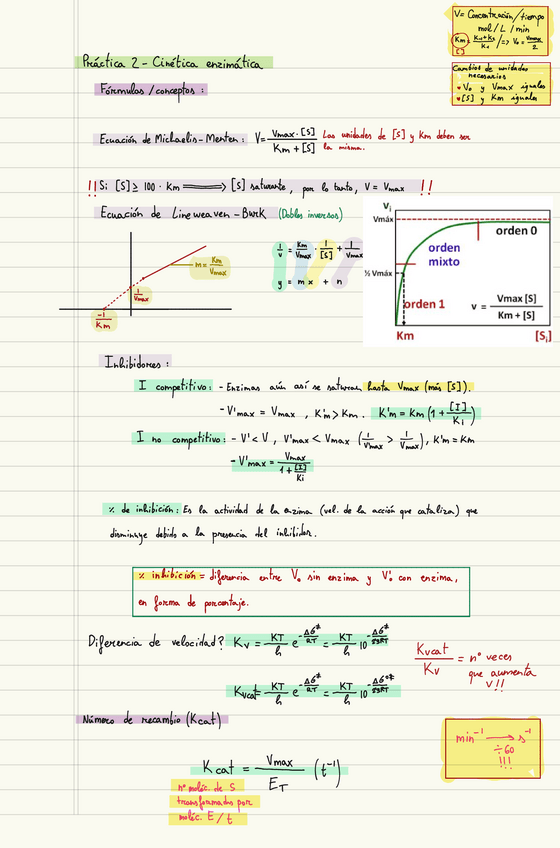 V = Concentración/tiempo
mol / L / min
Km = K-1+K2/K1 /=> V0 = Vmax/2
[]
Práctica 2 - Cinética enzimática
Cambios de unidades
necesarios
• V0 y Vmax iguales
• [S] y Km iguales
Fórmulas / conceptos :
Ecuación de Michaelis-Menten : V = Vmax · [S] / Km + [S] Las unidades de [S] y Km deben ser
la misma.
!! Si [S] ≥ 100 · Km ⟹ [S] saturante, por lo tanto, V = Vmax !!
Ecuación de Lineweaver-Burk (Dobles inversos)
1/v = Km/Vmax · 1/[S] + 1/Vmax
y = m x + n
m = Km/Vmax
1/Vmax
-1/Km
Vi
Vmáx
orden 0
orden
mixto
½ Vmáx
orden 1
v = Vmax [S] / Km + [S]
Km [Si]
Inhibidores :
I competitivo : - Enzimas aún así se saturan hasta Vmax (más [S]).
- V'max = Vmax , K'm > Km . K'm = Km (1 + [I]/Ki)
I no competitivo : - V' < V , V'max < Vmax (1/V'max > 1/Vmax), K'm = Km
- V'max = Vmax / 1 + [I]/Ki
% de inhibición : Es la actividad de la enzima (vel. de la acción que cataliza) que
disminuye debido a la presencia del inhibidor.
% inhibición = diferencia entre V0 sin enzima y V'0 con enzima,
en forma de porcentaje.
Diferencia de velocidad? Kv = KT/h e = KT/h 10
Kvcat / Kv = nº veces
que aumenta
V!!
Kvcat = KT/h e = KT/h 10
Número de recambio (Kcat)
min⁻¹ → s⁻¹
÷60
!!!
Kcat = Vmax / ET (t⁻¹)
nº moléc. de S
transformadas por
moléc. E / t